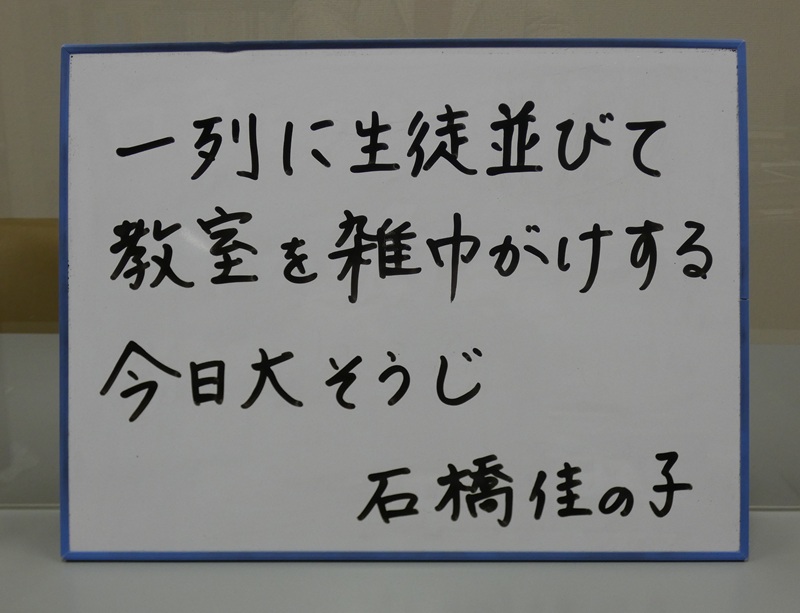 一列に生徒並びて
教室を雑巾がけする
今日大そうじ
石橋佳の子